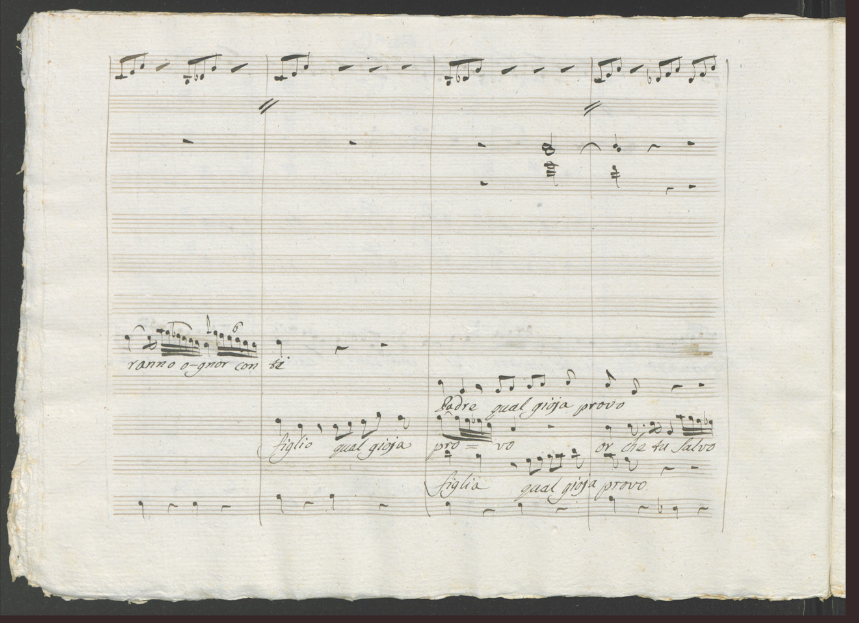 6
ranno o-gnor con te
Padre qual gioja provo
figlio qual gioja pro = vo or che tu salvo
figlia qual gioja provo